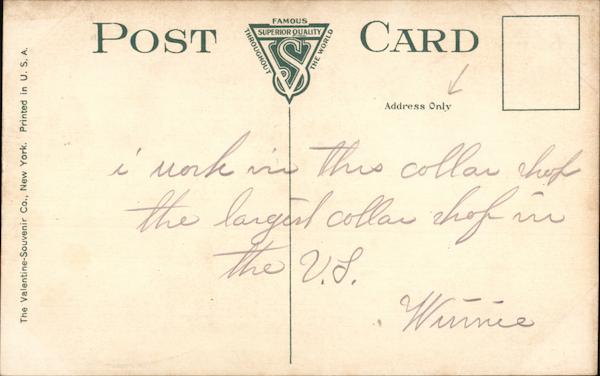 POST CARD
FAMOUS
SUPERIOR QUALITY
THROUGHOUT THE WORLD
VS
Address Only
i work in this collar shop
the largest collar shop in
the U.S.
Winnie
The Valentine-Souvenir Co., New York. Printed in U. S. A.